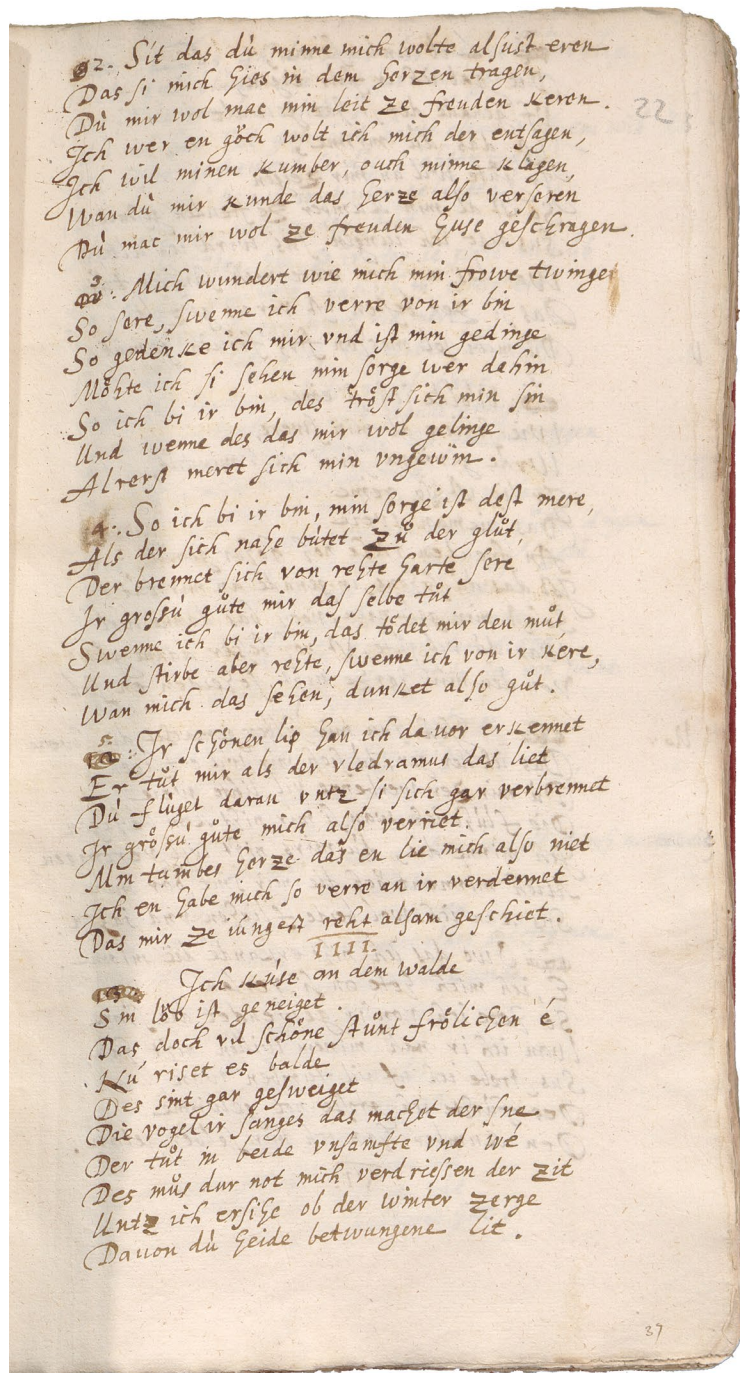 2. Sit das dù minne mich wolte alsust eren
Das si mich hies in dem herzen tragen,
Dù mir wol mac min leit ze freuden keren.
22
Ich wer en gôch wolt ich mich der entsagen,
Ich wil minen kumber, ouch minne klagen,
Wan dù mir kunde das herze also verseren
Dù mac mir wol ze freuden huse geschragen.
3. Mich wundert wie mich min frowe twinge
So sere, swenne ich verre von ir bin
So gedenke ich mir vnd ist min gedinge
Môhte ich si sehen min sorge wer dahin
So ich bi ir bin, des trôst sich min sin
Und wenne des das mir wol gelinge
Alrerst meret sich min vngewin.
4. So ich bi ir bin, min sorge ist dest mere,
Als der sich nahe bùtet zů der glůt,
Der brennet sich von rehte harte sere
Ir grossù gůte mir das selbe tůt
Swenne ich bi ir bin, das tôdet mir den můt
Und stirbe aber rehte, swenne ich von ir kere,
Wan mich das sehen, dunket also gůt.
5. Ir schônen lip han ich da vor erkennet
Er tůt mir als der vledramus das liet
Dù flùget daran vntz si sich gar verbrennet
Ir grôssù gůte mich also verriet.
Min tumbes herze das en lie mich also niet
Ich en habe mich so verre an ir verdennet
Das mir ze iùngest reht alsam geschiet.
IIII.
Ich kùse an dem walde
Sin lôb ist geneiget.
Das doch vil schône stůnt frôlichen é.
Nù riset es balde
Des sint gar gesweiget
Die vogel ir sanges das machet der sne
Der tůt in beide vnsamfte vnd wé
Des můs dur not mich verdriessen der zit
Untz ich ersihe ob der winter zerge
Dauon dù heide betwungene lit.
39